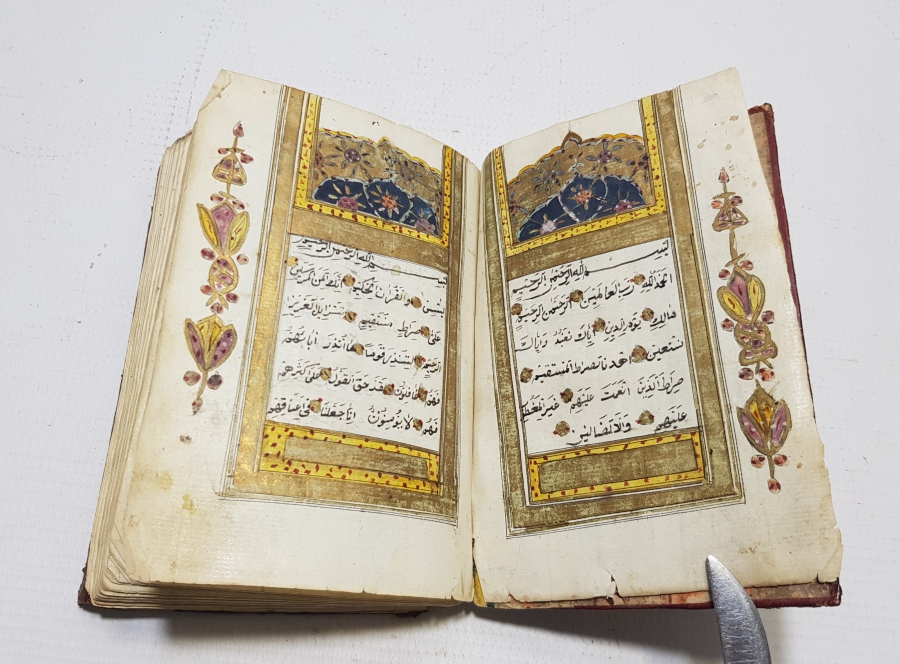 بسم الله الرحمن الرحيم
الحمد لله رب العالمين الرحمن الرحيم
مالك يوم الدين اياك نعبد واياك
نستعين اهدنا الصراط المستقيم
صراط الذين انعمت عليهم غير المغضوب
عليهم ولا الضالين
بسم الله الرحمن الرحيم
يس والقرآن الحكيم انك لمن المرسلين
على صراط مستقيم تنزيل العزيز
الرحيم لتنذر قوما ما انذر اباؤهم
فهم غافلون لقد حق القول على اكثرهم
فهم لا يؤمنون انا جعلنا في اعناقهم